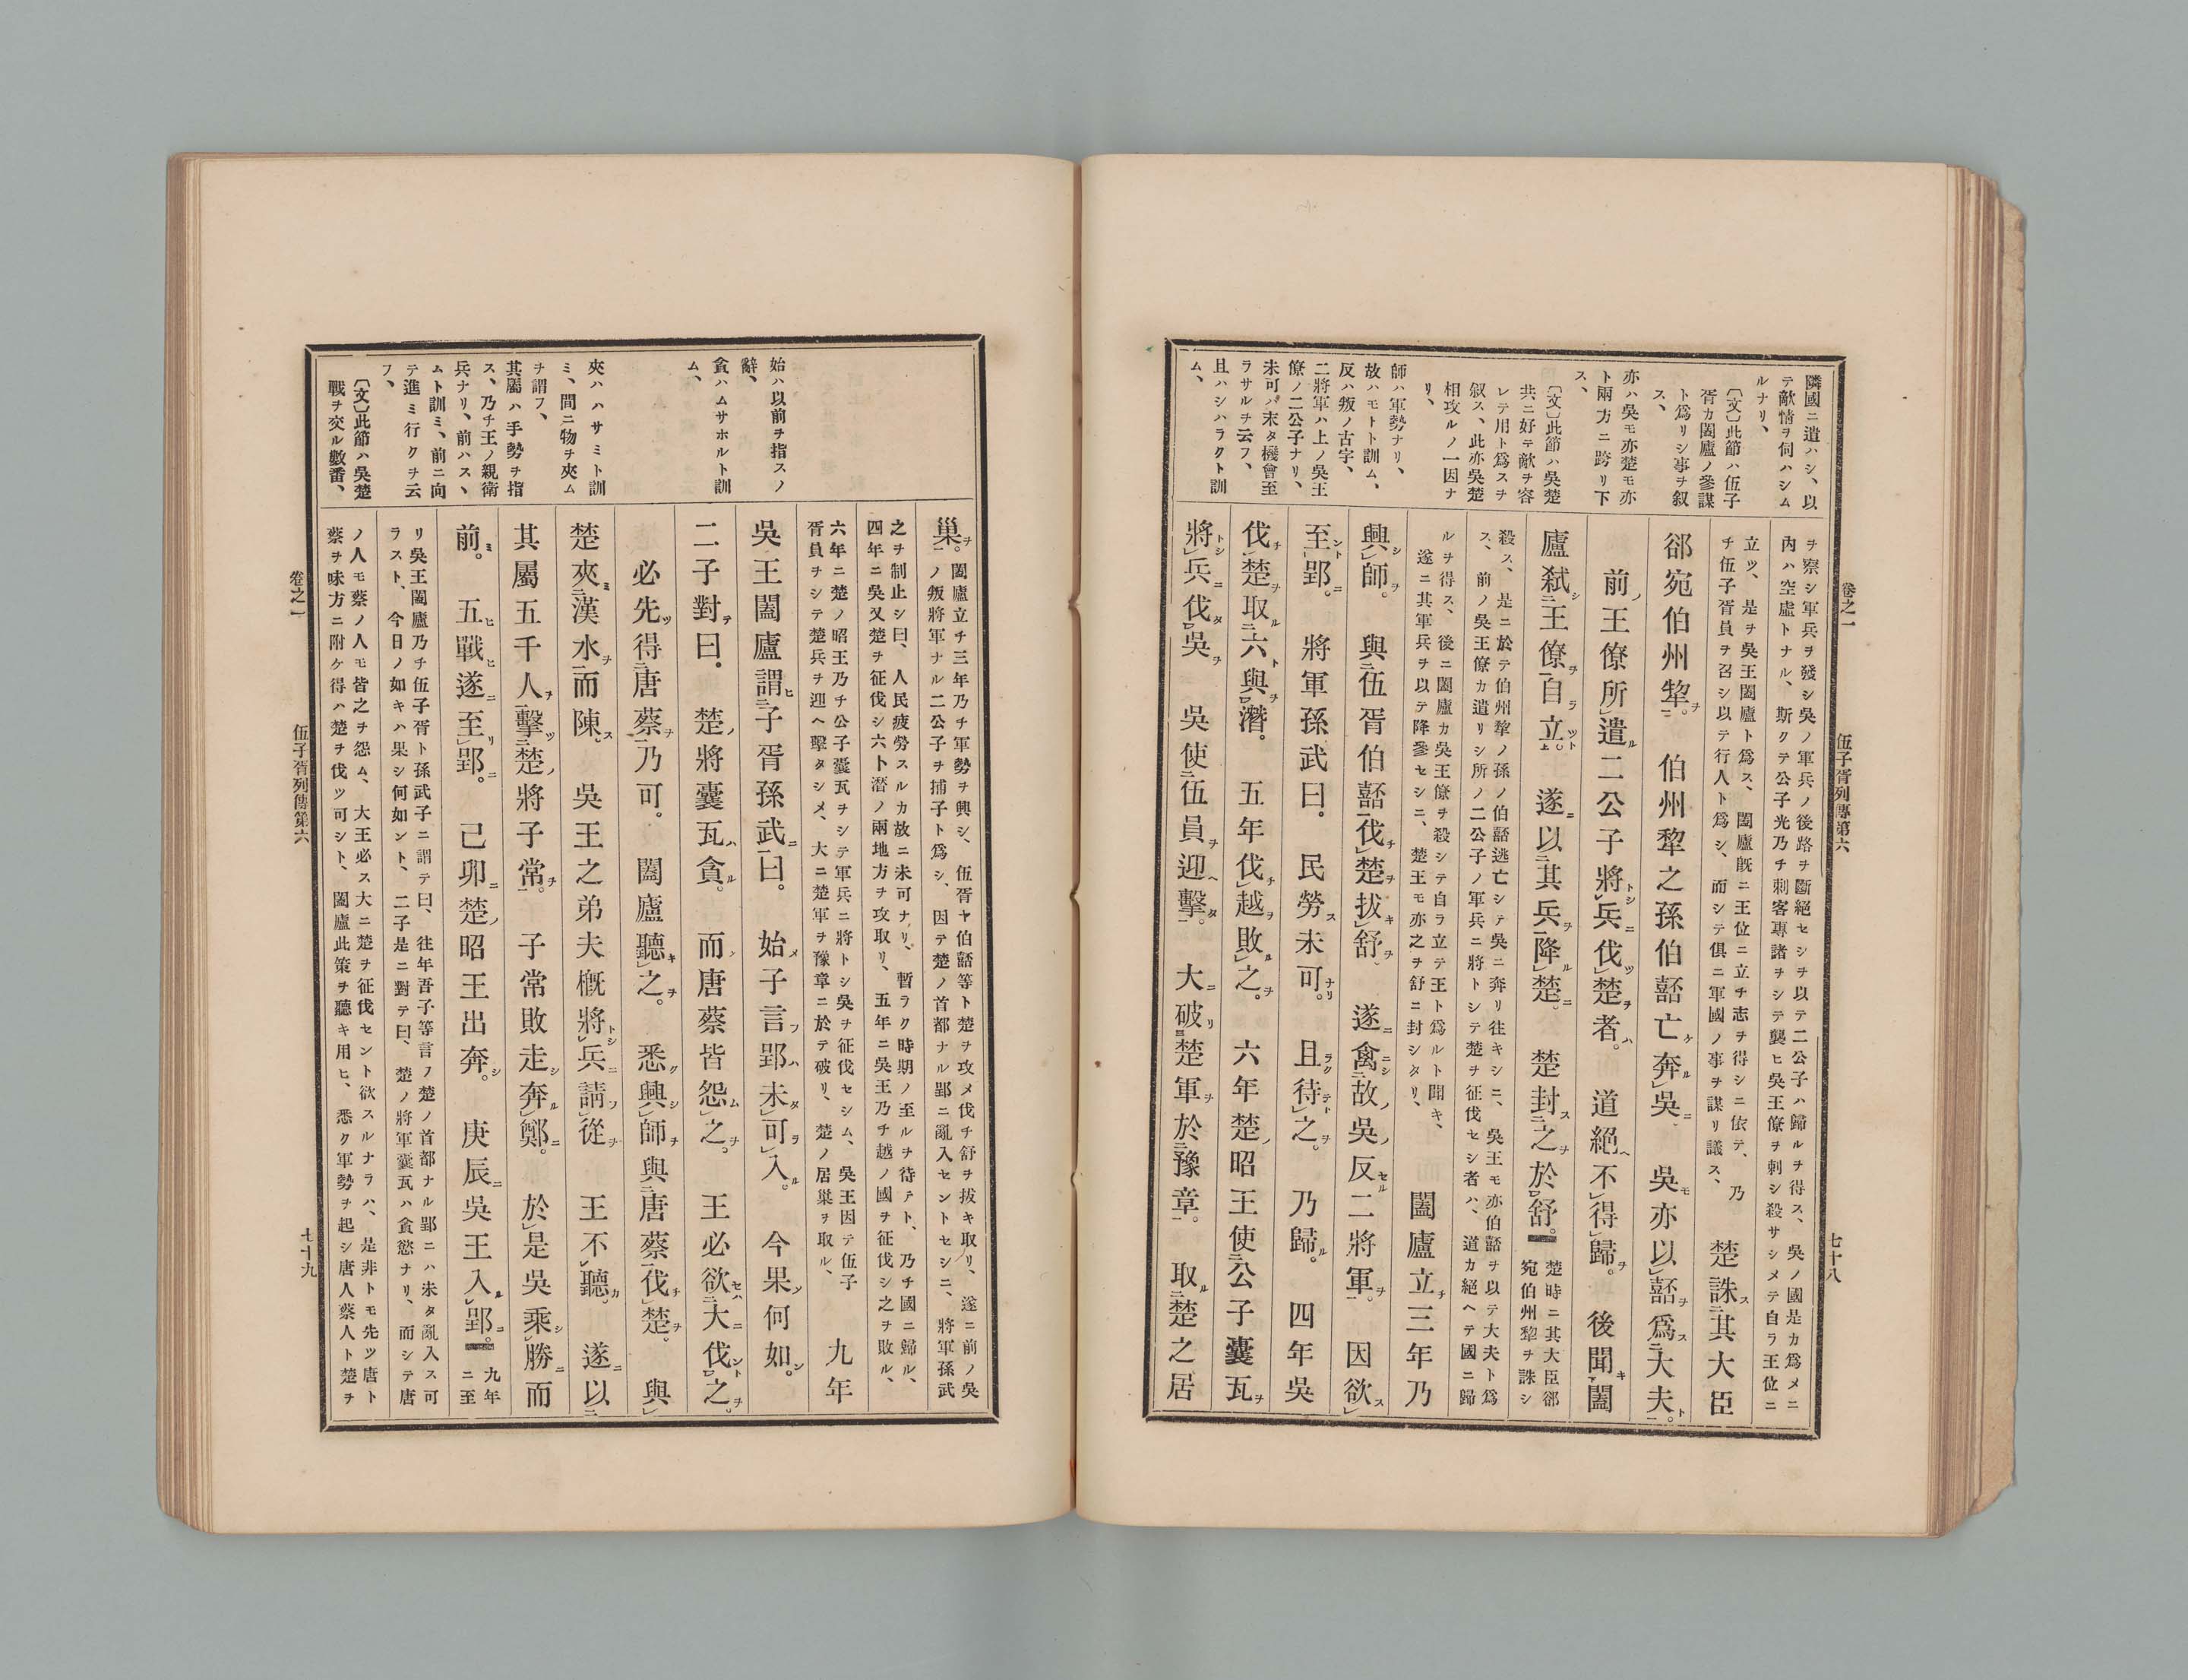 卷之一
伍子胥列傳第六
七十八
隣國ニ遣ハシ、以
テ敵情ヲ伺ハシム
ルナリ、
〔文〕此節ハ伍子
胥カ闔廬ノ參謀
ト爲リシ事ヲ叙
ス、
亦ハ吳モ亦楚モ亦
ト兩方ニ跨リ下
ス、
〔文〕此節ハ吳楚
共ニ好テ敵ヲ容
レテ用ト爲スヲ
叙ス、此亦吳楚
相攻ルノ一因ナ
リ、
師ハ軍勢ナリ、
故ハモトト訓ム、
反ハ叛ノ古字、
二將軍ハ上ノ吳王
僚ノ二公子ナリ、
未可ハ未タ機會至
ラサルヲ云フ、
且ハシハラクト訓
ム、
ヲ察シ軍兵ヲ發シ吳ノ軍兵ノ後路ヲ斷絕セシヲ以テ二公子ハ歸ルヲ得ス、吳ノ國是カ爲メニ
內ハ空虛トナル、斯クテ公子光乃チ刺客專諸ヲシテ襲ヒ吳王僚ヲ刺シ殺サシメテ自ラ王位ニ
立ツ、是ヲ吳王闔廬ト爲ス、闔廬旣ニ王位ニ立チ志ヲ得シニ依テ、乃
チ伍子胥員ヲ召シ以テ行人ト爲シ、而シテ俱ニ軍國ノ事ヲ謀リ議ス、
楚誅二其大臣
郤宛伯州犂一。伯州犂之孫伯嚭亡奔レ吳、吳亦以レ嚭爲二大夫一。
前王僚所レ遣二公子將レ兵伐レ楚者。道絕不レ得レ歸。後聞下闔
廬弑二王僚一自立上。遂以二其兵一降レ楚。楚封二之於舒一。
楚時ニ其大臣郤
宛伯州犂ヲ誅シ
殺ス、是ニ於テ伯州犂ノ孫ノ伯嚭逃亡シテ吳ニ奔リ往キシニ、吳王モ亦伯嚭ヲ以テ大夫ト爲
ス、前ノ吳王僚カ遣リシ所ノ二公子ノ軍兵ニ將トシテ楚ヲ征伐セシ者ハ、道カ絕ヘテ國ニ歸
ルヲ得ス、後ニ闔廬カ吳王僚ヲ殺シテ自ラ立テ王ト爲ルト聞キ、
遂ニ其軍兵ヲ以テ降參セシニ、楚王モ亦之ヲ舒ニ封シタリ、
闔廬立三年乃
興レ師。與二伍胥伯嚭一伐レ楚拔レ舒、遂禽二故吳反二將軍一。因欲レ
至レ郢。將軍孫武曰。民勞未レ可。且待レ之。乃歸。四年吳
伐レ楚取二六與一レ潛。五年伐レ越敗レ之。六年楚昭王使二公子囊瓦
將レ兵伐一レ吳。吳使二伍員迎擊一。大破二楚軍於豫章一。取二楚之居
卷之一
伍子胥列傳第六
七十九
始ハ以前ヲ指スノ
辭、
貪ハムサホルト訓
ム、
夾ハハサミト訓
ミ、間ニ物ヲ夾ム
ヲ謂フ、
其屬ハ手勢ヲ指
ス、乃チ王ノ親衛
兵ナリ、前ハスヽ
ムト訓ミ、前ニ向
テ進ミ行クヲ云
フ、
〔文〕此節ハ吳楚
戰ヲ交ル數番、
巢一。
闔廬立チ三年乃チ軍勢ヲ興シ、伍胥ヤ伯嚭等ト楚ヲ攻メ伐チ舒ヲ拔キ取リ、遂ニ前ノ吳
ノ叛將軍ナル二公子ヲ捕子ト爲シ、因テ楚ノ首都ナル郢ニ亂入セントセシニ、將軍孫武
之ヲ制止シ曰、人民疲勞スルカ故ニ未可ナリ、暫ラク時期ノ至ルヲ待テト、乃チ國ニ歸ル、
四年ニ吳又楚ヲ征伐シ六ト潛ノ兩地方ヲ攻取リ、五年ニ吳王乃チ越ノ國ヲ征伐シ之ヲ敗ル、
六年ニ楚ノ昭王乃チ公子囊瓦ヲシテ軍兵ニ將トシ吳ヲ征伐セシム、吳王因テ伍子
胥員ヲシテ楚兵ヲ迎ヘ擊タシメ、大ニ楚軍ヲ豫章ニ於テ破リ、楚ノ居巢ヲ取ル、
九年
吳王闔廬謂二子胥孫武一曰。始子言郢未レ可レ入。今果何如。
二子對曰。楚將囊瓦貪。而唐蔡皆怨レ之。王必欲二大伐一レ之。
必先得二唐蔡一乃可。闔廬聽レ之。悉興レ師與二唐蔡一伐レ楚。與レ
楚夾二漢水一而陳。吳王之弟夫概將レ兵請レ從。王不レ聽。遂以二
其屬五千人一擊二楚將子常一。子常敗走奔レ鄭。於レ是吳乘レ勝而
前。五戰遂至レ郢。己卯楚昭王出奔。庚辰吳王入レ郢。
九年
ニ至
リ吳王闔廬乃チ伍子胥ト孫武子ニ謂テ曰、往年吾子等言フ楚ノ首都ナル郢ニハ未タ亂入ス可
ラスト、今日ノ如キハ果シ何如ント、二子是ニ對テ曰、楚ノ將軍囊瓦ハ貪慾ナリ、而シテ唐
ノ人モ蔡ノ人モ皆之ヲ怨ム、大王必ス大ニ楚ヲ征伐セント欲スルナラハ、是非トモ先ツ唐ト
蔡ヲ味方ニ附ケ得ハ楚ヲ伐ツ可シト、闔廬此策ヲ聽キ用ヒ、悉ク軍勢ヲ起シ唐人蔡人ト楚ヲ